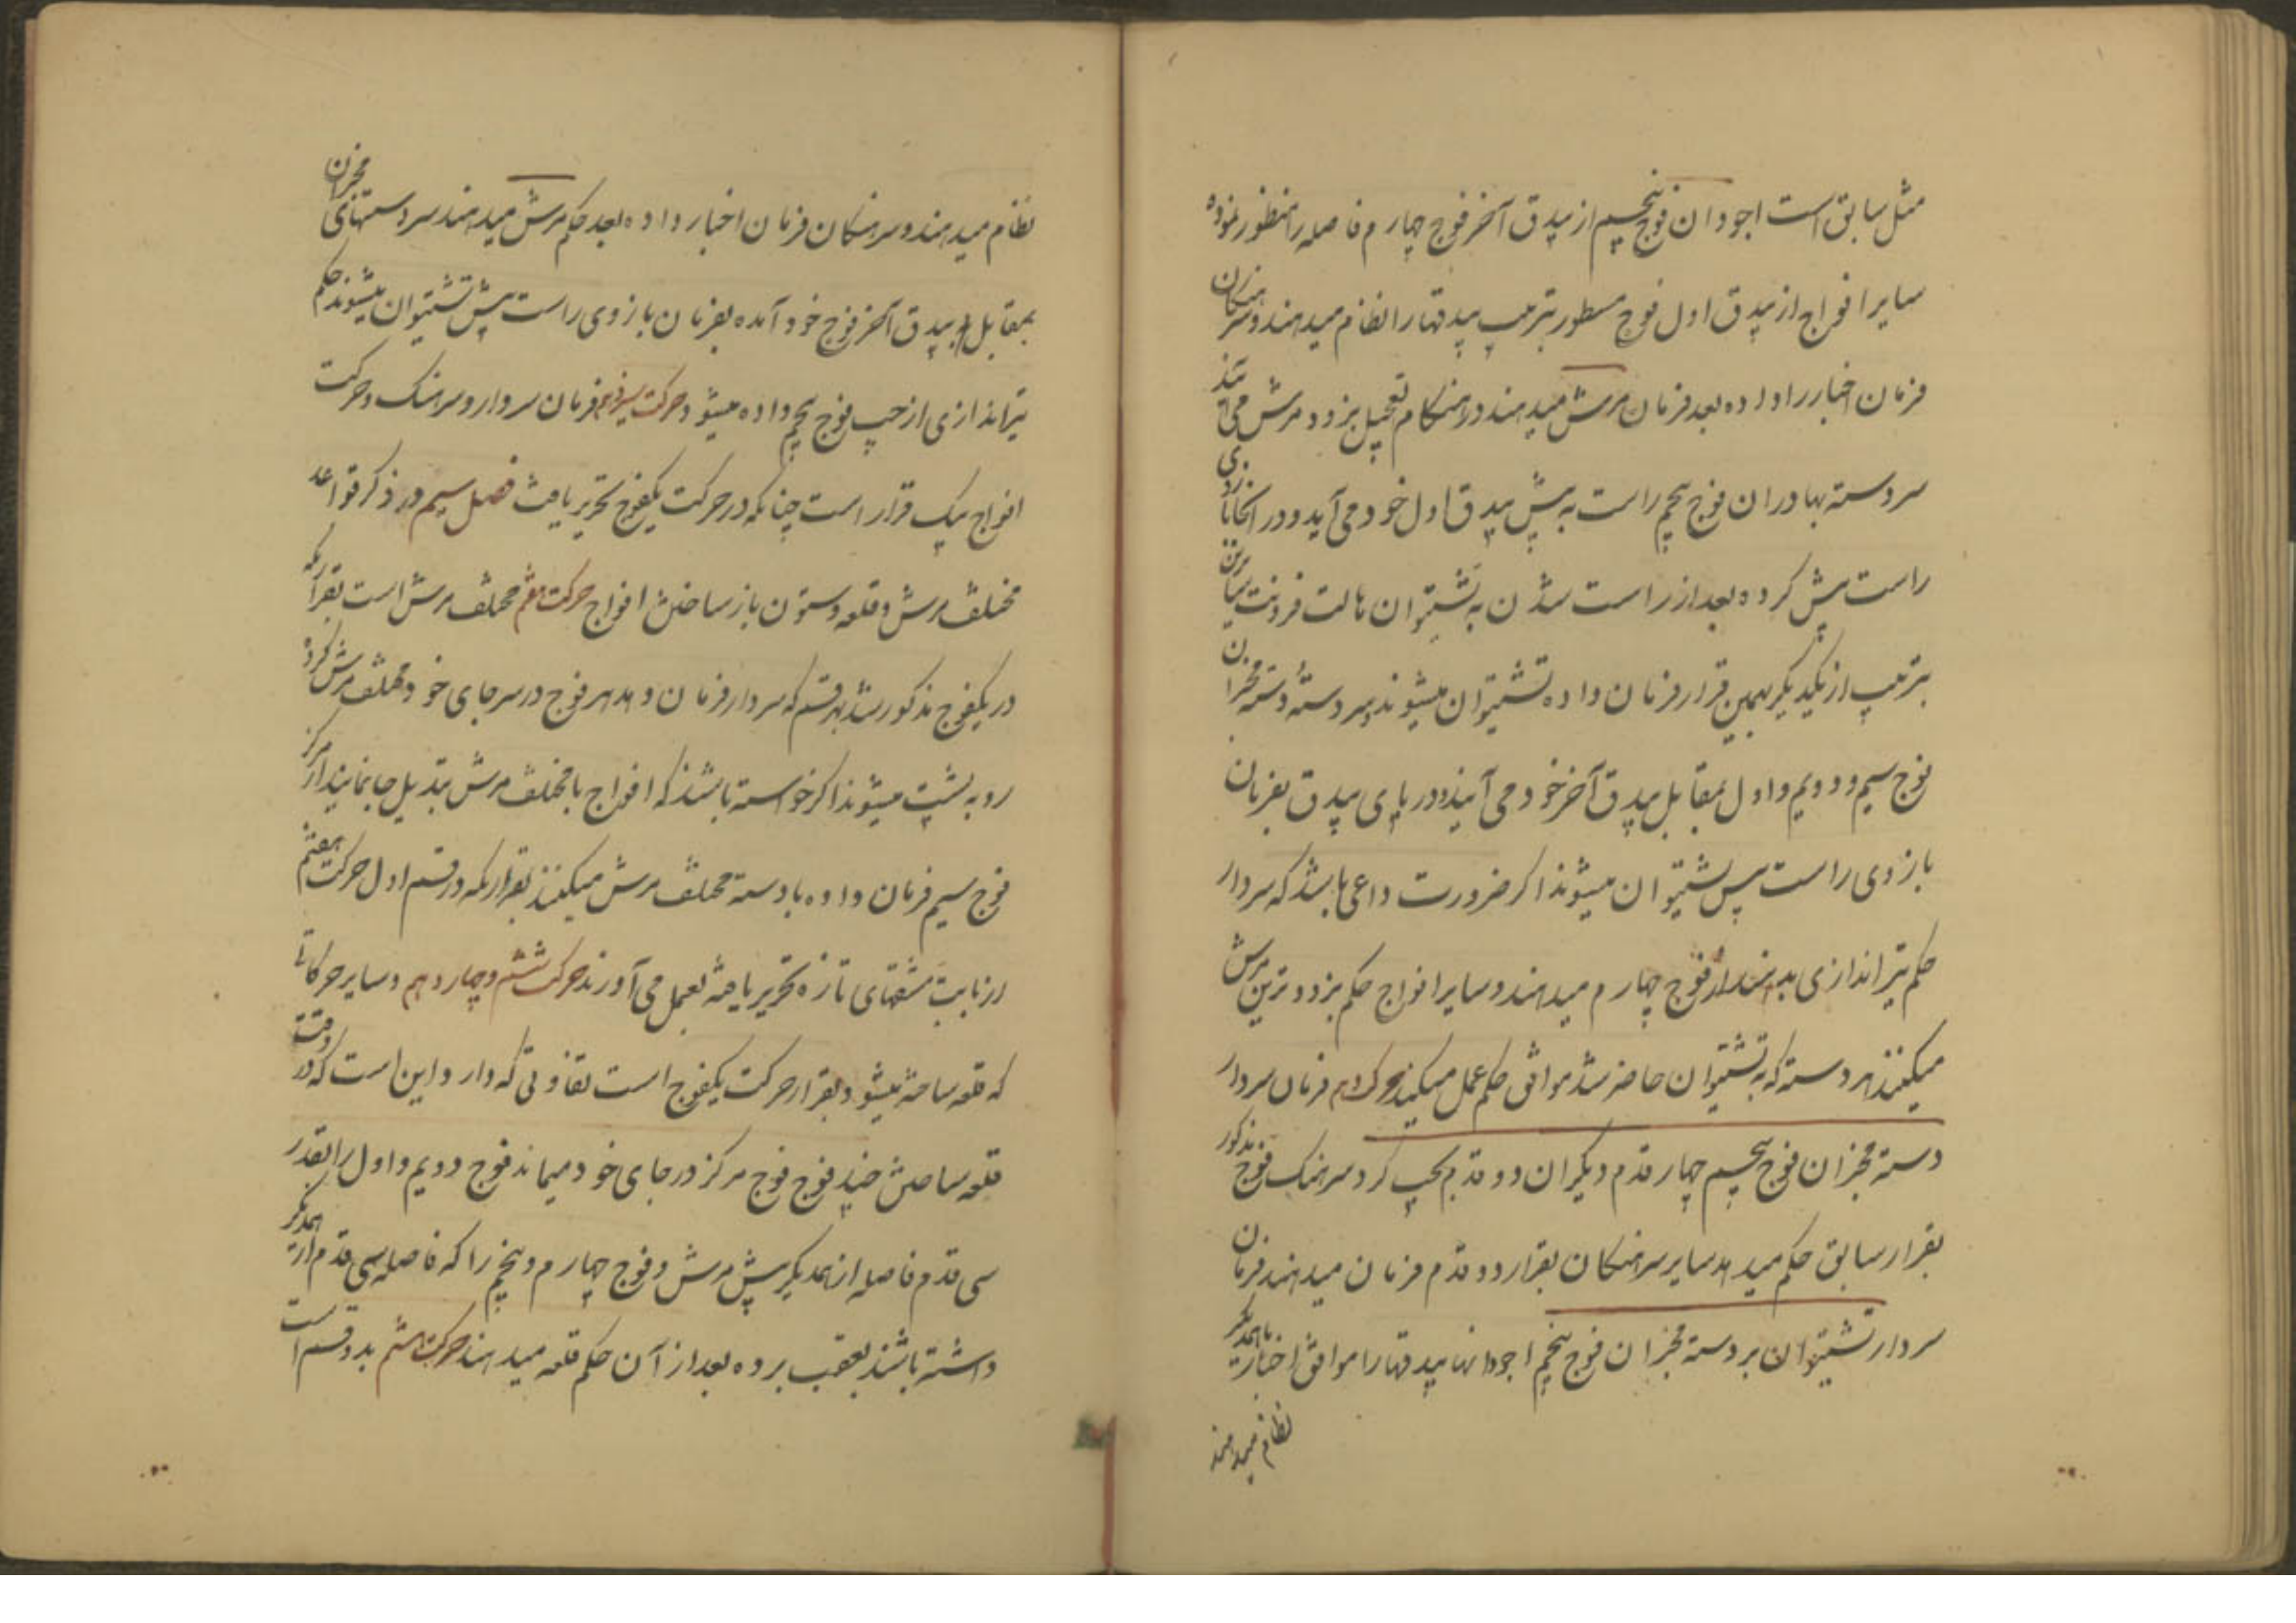 مثل سابق است اجودان فوج پنجیم از بیدق آخر فوج چهارم فاصله را منظور نموده
سایر افواج از بیدق اول فوج مسطور بترتیب بیدقها را نظام میدهند و سرهنگان
فرمان اخبار را داده بعد فرمان مرش میدهند در هنگام تعجیل بزودو مرش می‌
سردسته بهادران فوج پنجم راست به پیش بیدق اول خود می‌آید و در انجا بازوی
راست پیش کرده بعد از راست شدن به تشتیوان هالت فرونت
بترتیب از یکدیگر بهمین قرار فرمان داده تشتیوان میشوند و سردسته دسته مخبران
فوج سیم و دویم و اول بمقابل بیدق آخر خود می‌آیند و در پای بیدق بفرمان
بازوی راست پس تشتیوان میشوند اگر ضرورت داعی باشد که سردار
حکم تیراندازی بدهند از فوج چهارم میدهند و سایر افواج حکم بزودترین مرش
میکنند هر دسته که به تشتیوان حاضر شد موافق حکم عمل میکنند فرمان سردار
دسته مخبران فوج پنجیم چهار قدم دیگران دو قدم بچپ گرد سرهنک فوج مذکور
بقرار سابق حکم میدهد سایر سرهنگان بقرار دو قدم فرمان میدهند فرمان
سردار تشتیوان بر دسته مخبران فوج پنجم اجودانها بیدقها را موافق اخبار با همدیگر
نظام میدهند
نظام میدهند و سرهنگان فرمان اخبار داده بعد حکم مرش میدهند سردستهای مخبران
بمقابل بیدق آخر فوج خود آمده بفرمان بازوی راست پیش تشتیوان میشوند حکم
تیراندازی از چپ فوج پنجم داده میشود حرکت سیزدهم فرمان سردار و سرهنک و حرکت
افواج بیک قرار است چنانکه در حرکت یکفوج تحریر یافت فصل سیم در ذکر قواعد
مخلف مرش و قلعه و ستون باز ساختن افواج حرکت پنجم مخلف مرش است بقراریکه
در یکفوج مذکور شد بهر قسم که سردار فرمان دهد هر فوج در سر جای خود مخلف مرش کرده
رو به پشت میشوند اگر خواسته باشند که افواج با مخلف مرش تبدیل جا نمایند از مرکز
فوج سیم فرمان داده با دسته مخلف مرش میکنند بقراریکه در قسم اول حرکت هفتم
از بابت مشقهای تازه تحریر یافته بعمل می‌آورند حرکت ششم و چهاردهم و سایر حرکاتی
که قلعه ساخته میشود بقرار حرکت یکفوج است تفاوتی که دارد این است که در وقت
قلعه ساختن چند فوج فوج مرکز در جای خود میماند فوج دویم و اول را بقدر
سی قدم فاصله از همدیگر پیش مرش و فوج چهارم و پنجم را که فاصله سی قدم از همدیگر
داشته باشند بعقب برده بعد از آن حکم قلعه میدهند حرکت هشتم بدو قسم است